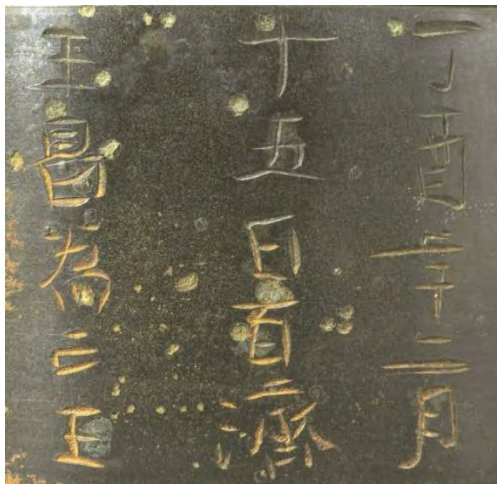 丁酉年二月
十五日百濟
王昌為亡王